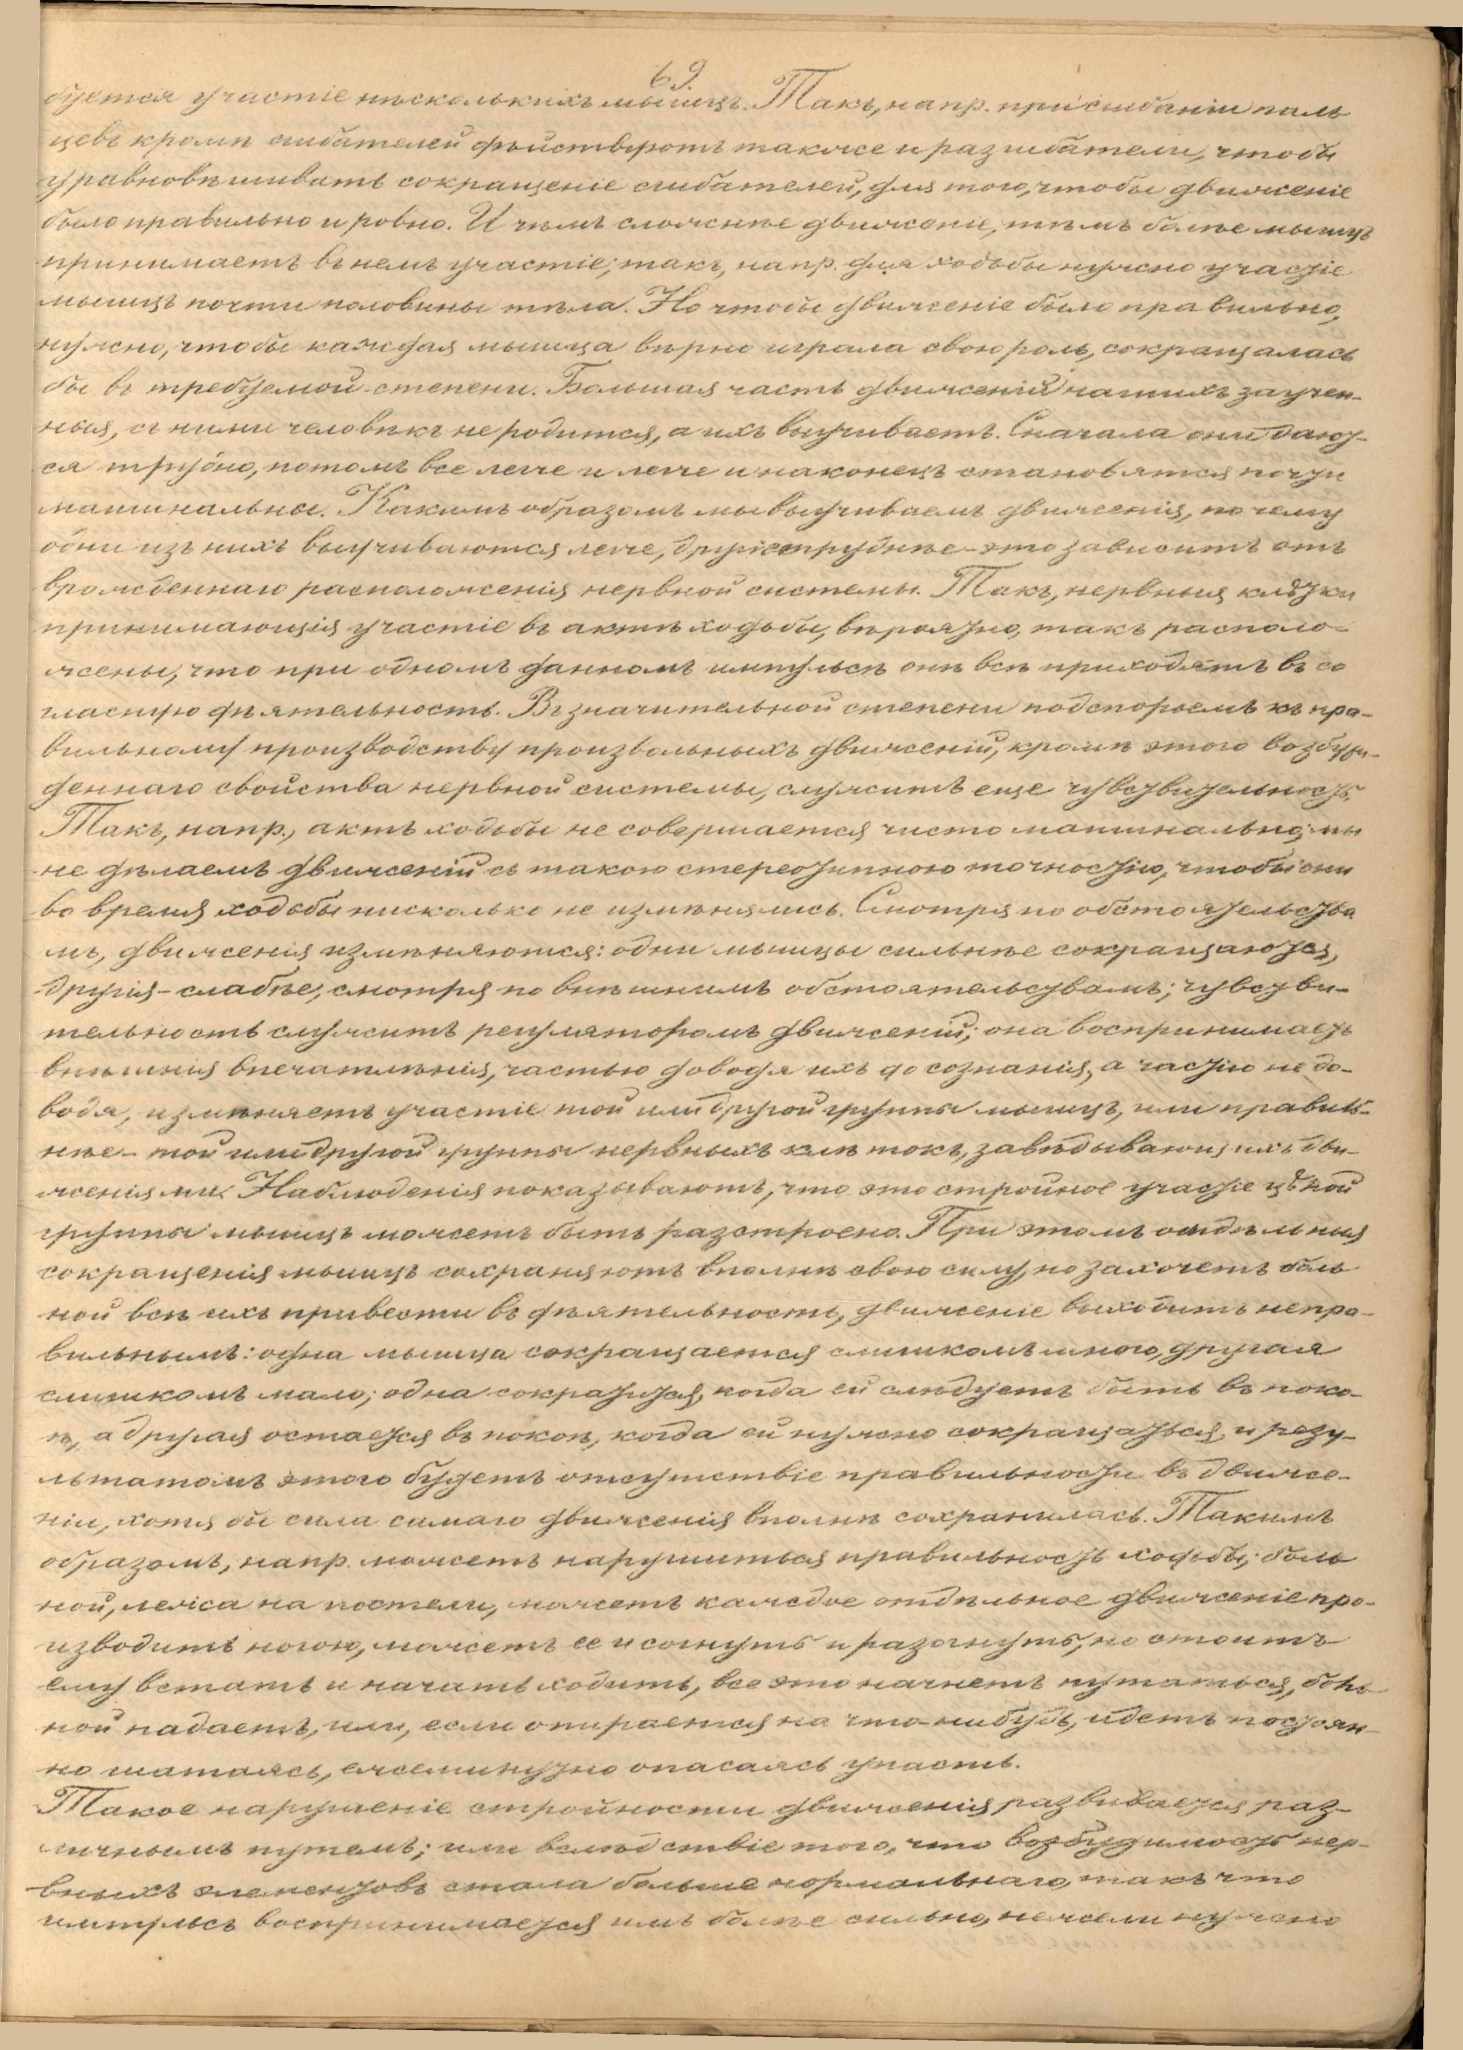 69.
буется участіе нѣсколькихъ мышцъ. Такъ, напр. при сгибаніи паль
цевъ кромѣ сгибателей дѣйствуютъ также и разгибатели, чтобы
уравновѣшивать сокращеніе сгибателей, для того, чтобы движеніе
было правильно и ровно. И чѣмъ сложнѣе движеніе, тѣмъ болѣе мышцъ
принимаетъ въ немъ участіе; такъ, напр. для ходьбы нужно участіе
мышцъ почти половины тѣла. Но чтобы движеніе было правильно,
нужно, чтобы каждая мышца вѣрно играла свою роль, сокращалась
бы въ требуемой степени. Большая часть движеній нашихъ заучен-
ныя, съ ними человѣкъ не родится, а ихъ выучиваетъ. Сначала они даюу-
ся трудно, потомъ все легче и легче и наконецъ становятся почти
машинальны. Какимъ образомъ мы выучиваемъ движенія, почему
одни изъ нихъ выучиваются легче, другіе труднѣе – это зависитъ отъ
врожденнаго расположенія нервной системы. Такъ, нервныя клѣтки
принимающія участіе въ актѣ ходьбы, вѣроятно, такъ располо-
жены, что при одномъ данномъ импульсѣ онѣ всѣ приходятъ въ со
гласную дѣятельность. Въ значительной степени подспорьемъ къ пра-
вильному производству произвольныхъ движеній, кромѣ этого возбуж-
деннаго свойства нервной системы, служитъ еще чувствительность.
Такъ, напр., актъ ходьбы не совершается чисто машинально; мы
не дѣлаемъ движеній съ такою стереотипною точностію, чтобы они
во время ходьбы нисколько не измѣнялись. Смотря по обстоятельства
мъ, движенія измѣняются: одни мышцы сильнѣе сокращаются,
другія – слабѣе, смотря по внѣшнимъ обстоятельствамъ; чувстви-
тельность служитъ регуляторомъ движеній; она воспринимаетъ
внѣшнія впечатлѣнія, частью доводя ихъ до сознанія, а частію не до-
водя, измѣняетъ участіе той или другой группы мышцъ, или правиль-
нѣе – той или другой группы нервныхъ клѣтокъ, завѣдывающихъ дви-
женіями. Наблюденія показываютъ, что это стройное участіе цѣлой
группы мышцъ можетъ быть разстроено. При этомъ отдѣльныя
сокращенія мышцъ сохраняютъ вполнѣ свою силу, но захочетъ боль
ной всѣ ихъ привести въ дѣятельность, движеніе выходитъ непра-
вильнымъ: одна мышца сокращается слишкомъ много, другая
слишкомъ мало; одна сократится, когда ей слѣдуетъ быть въ поко-
ѣ, а другая остается въ покоѣ, когда ей нужно сокращаться, и резу-
льтатомъ этого будетъ отсутствіе правильности въ движе-
ніи, хотя бы сила самаго движенія вполнѣ сохранилась. Такимъ
образомъ, напр. можетъ нарушиться правильность ходьбы; боль
ной, лежа на постели, можетъ каждое отдѣльное движеніе про-
изводить ногою, можетъ ее и согнуть и разогнуть, но стоитъ
ему встать и начать ходить, все это начнетъ путаться, боль
ной падаетъ, или, если опирается на что-нибудь, идетъ постоян-
но шатаясь, ежеминутно опасаясь упасть.
Такое нарушеніе стройности движенія развивается раз-
личнымъ путемъ; или вслѣдствіе того, что возбудимость нер-
вныхъ элементовъ стала больше нормальнаго, такъ что
импульсъ воспринимается имъ болѣе сильно, нежели нужно